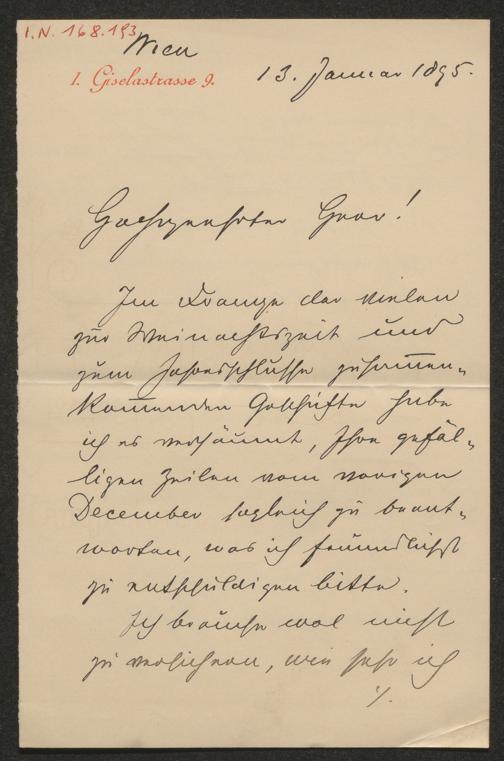 I.N. 168.193
Wien
I. Giselastrasse 9.
13. Januar 1895.
Hochgeehrter Herr!
Im Drange der vielen
zur Weinachtszeit und
zum Jahresschlusse zusammen-
kommenden Geschäfte habe
ich es versäumt, Ihre gefäl-
ligen Zeilen vom vorigen
December sogleich zu beant-
worten, was ich freundlichst
zu entschuldigen bitte.
Ich brauche wol nicht
zu versichern, wie sehr ich
./.